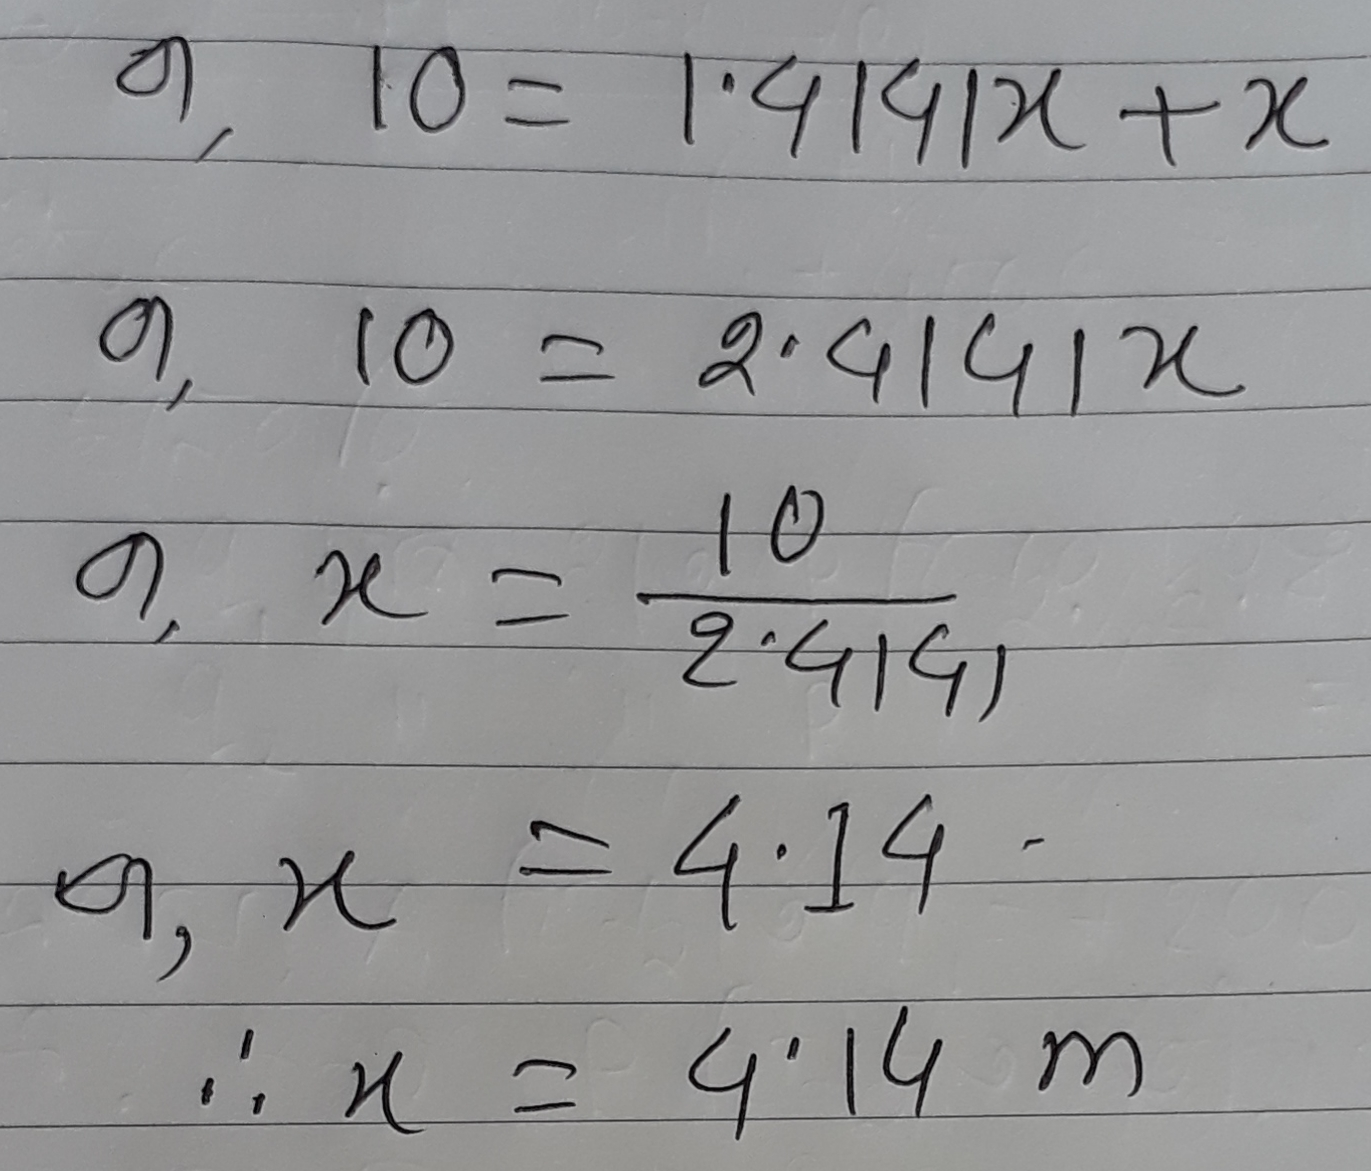 or, 10 = 1.4141x + x
or, 10 = 2.4141x
or, x = 10/2.4141
or, x = 4.14
∴ x = 4.14 m